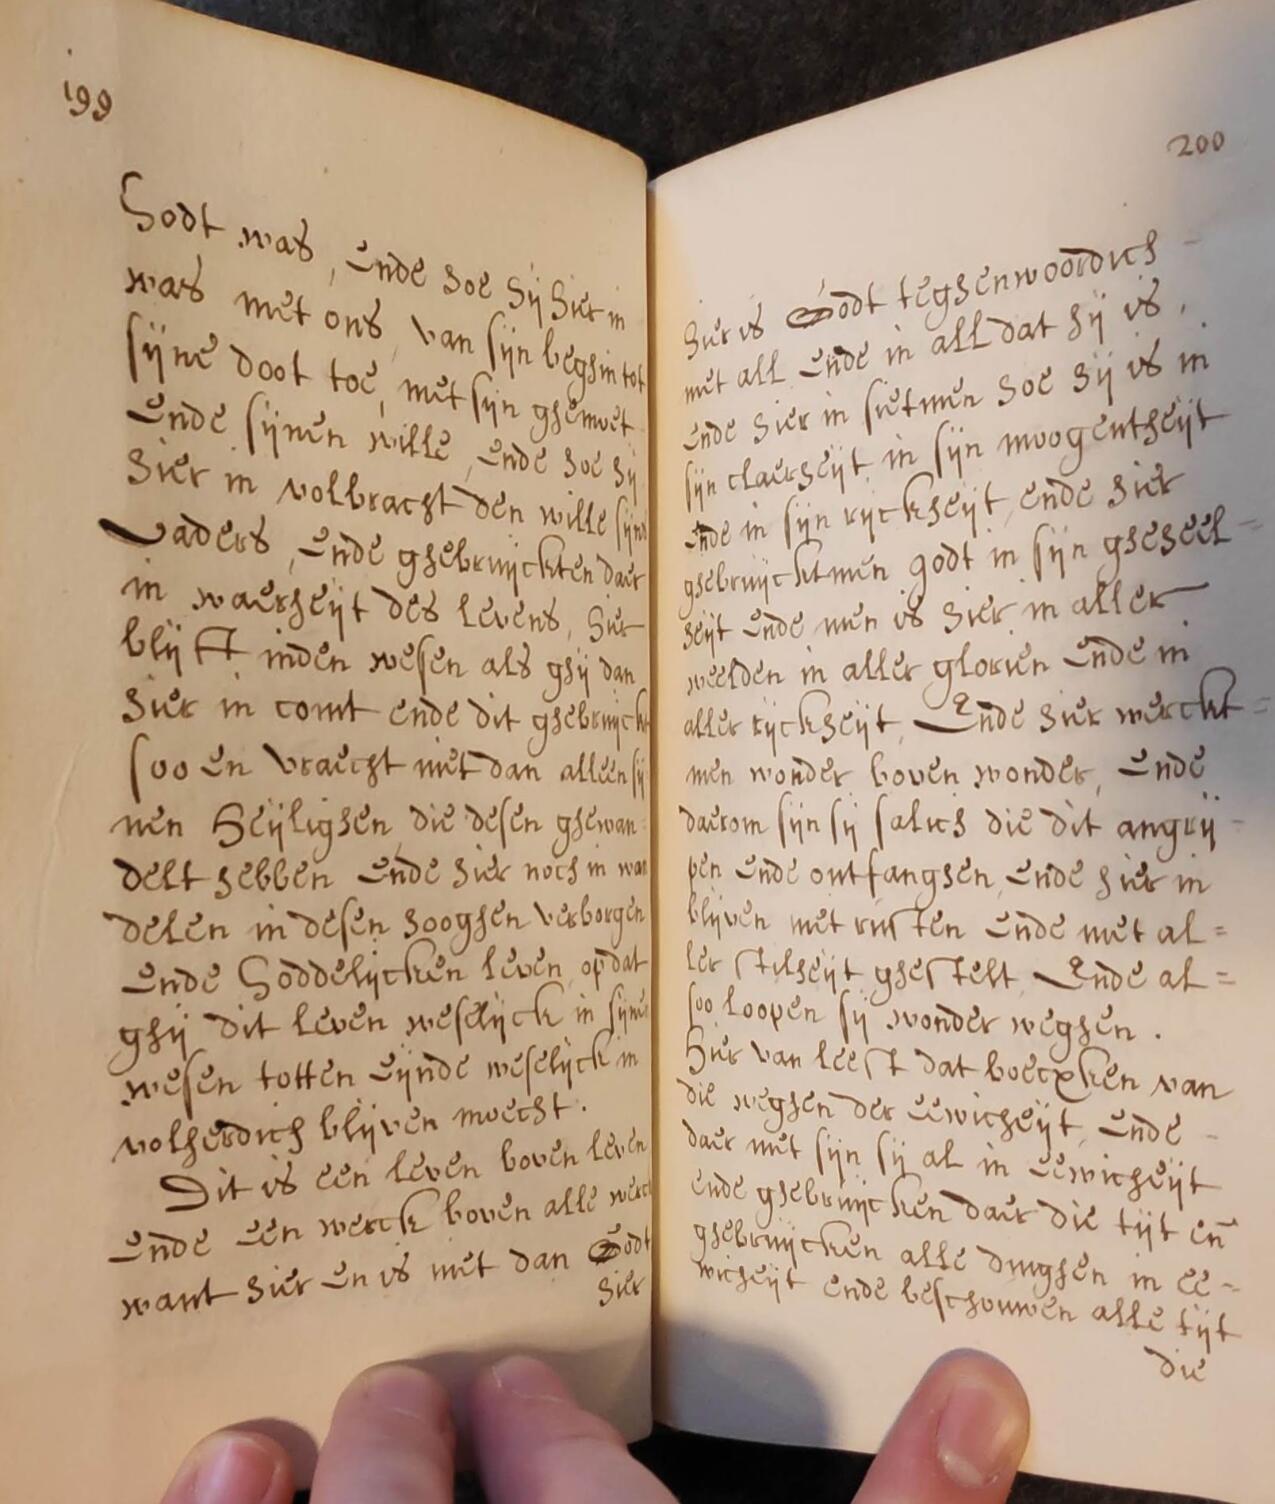 199
Godt was, ende hoe hij hier in
was met ons, van sijn beghin tot
sijne doot toe, met sijn ghemoet
ende sijnen wille, ende hoe hij
hier in volbracht den wille sijns
Vaders, ende ghebruijckten daer
in waerheijt des levens, hier
blijft inden wesen als ghij dan
hier in comt ende dit ghebruijckt
soo en vraecht niet dan alleen sij
nen Heijlighen die desen ghewan
delt hebben ende hier noch in wan
delen in desen hooghen verborgen
ende Goddelijcken leven, opdat
ghij dit leven weselijck in sijnen
wesen totten eijnde weselijck in
volherdich blijven moecht.
Dit is een leven boven leven
ende een werck boven alle werck
want hier en is niet dan Godt
hier
200
hier is Godt teghenwoordich
met all ende in all dat hij is,
ende hier in sietmen hoe hij is in
sijn claerheijt in sijn moogentheijt
ende in sijn rijckheijt, ende hier
ghebruijcktmen godt in sijn gheheel=
heijt ende men is hier in aller
weelden in aller glorien ende in
aller rijckheijt, Ende hier werckt=
men wonder boven wonder, ende
daerom sijn sij salich die dit angrij
pen ende ontfanghen, ende hier in
blijven met rusten ende met al=
ler stilheijt ghestelt, Ende al=
soo loopen sij wonder weghen.
Hier van leest dat boecxken van
die weghen der eewicheijt, ende
daer met sijn sij al in eewicheijt
ende ghebruijcken daer die tijt en̄
ghebruijcken alle dinghen in ee=
wicheijt ende beschouwen alle tijt
die